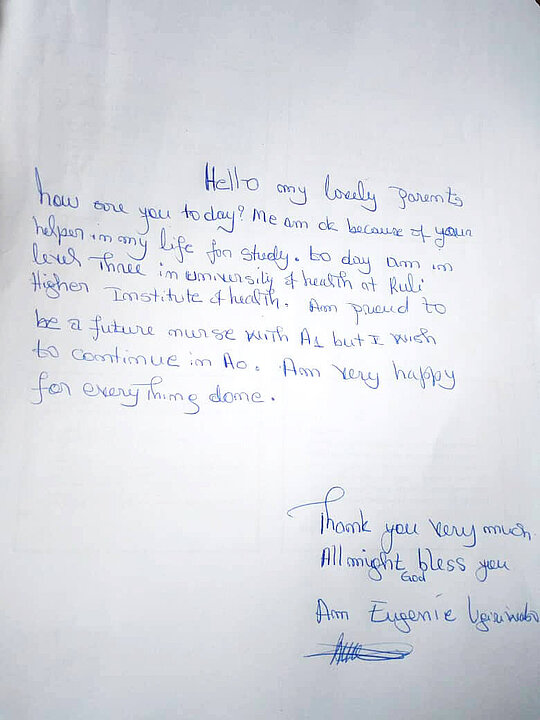 Hello my lovely parents
how are you today? Me am ok because of your
helper in my life for study. to day am in
level Three in university of health at Ruli
Higher Institute of health. Am proud to
be a future nurse with A1 but I wish
to continue in Ao. Am very happy
for everything done.
Thank you very much.
All might God bless you
Am Eugenie